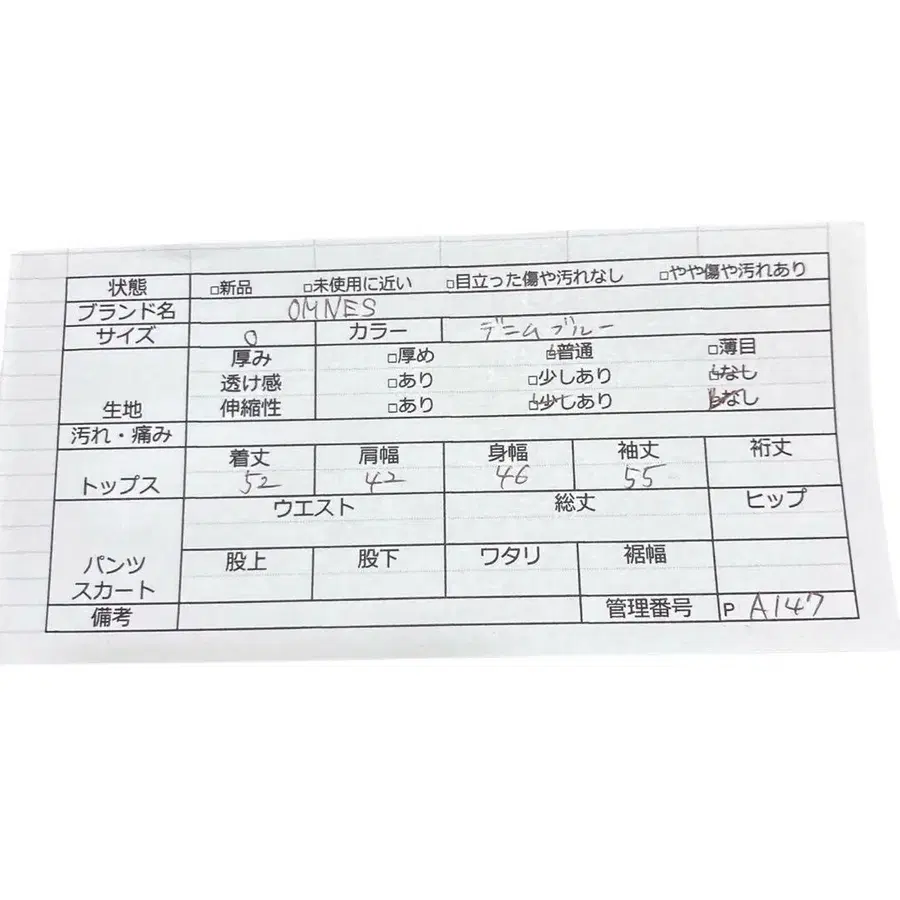 状態 □新品 □未使用に近い □目立った傷や汚れなし □やや傷や汚れあり
ブランド名 OMNES
サイズ 0 カラー デニムブルー
厚み □厚め □普通 □薄目
透け感 □あり □少しあり □なし
生地 伸縮性 □あり □少しあり □なし
汚れ・痛み
着丈 肩幅 身幅 袖丈 裄丈
トップス 52 42 46 55
ウエスト 総丈 ヒップ
パンツ 股上 股下 ワタリ 裾幅
スカート
備考 管理番号 P A147